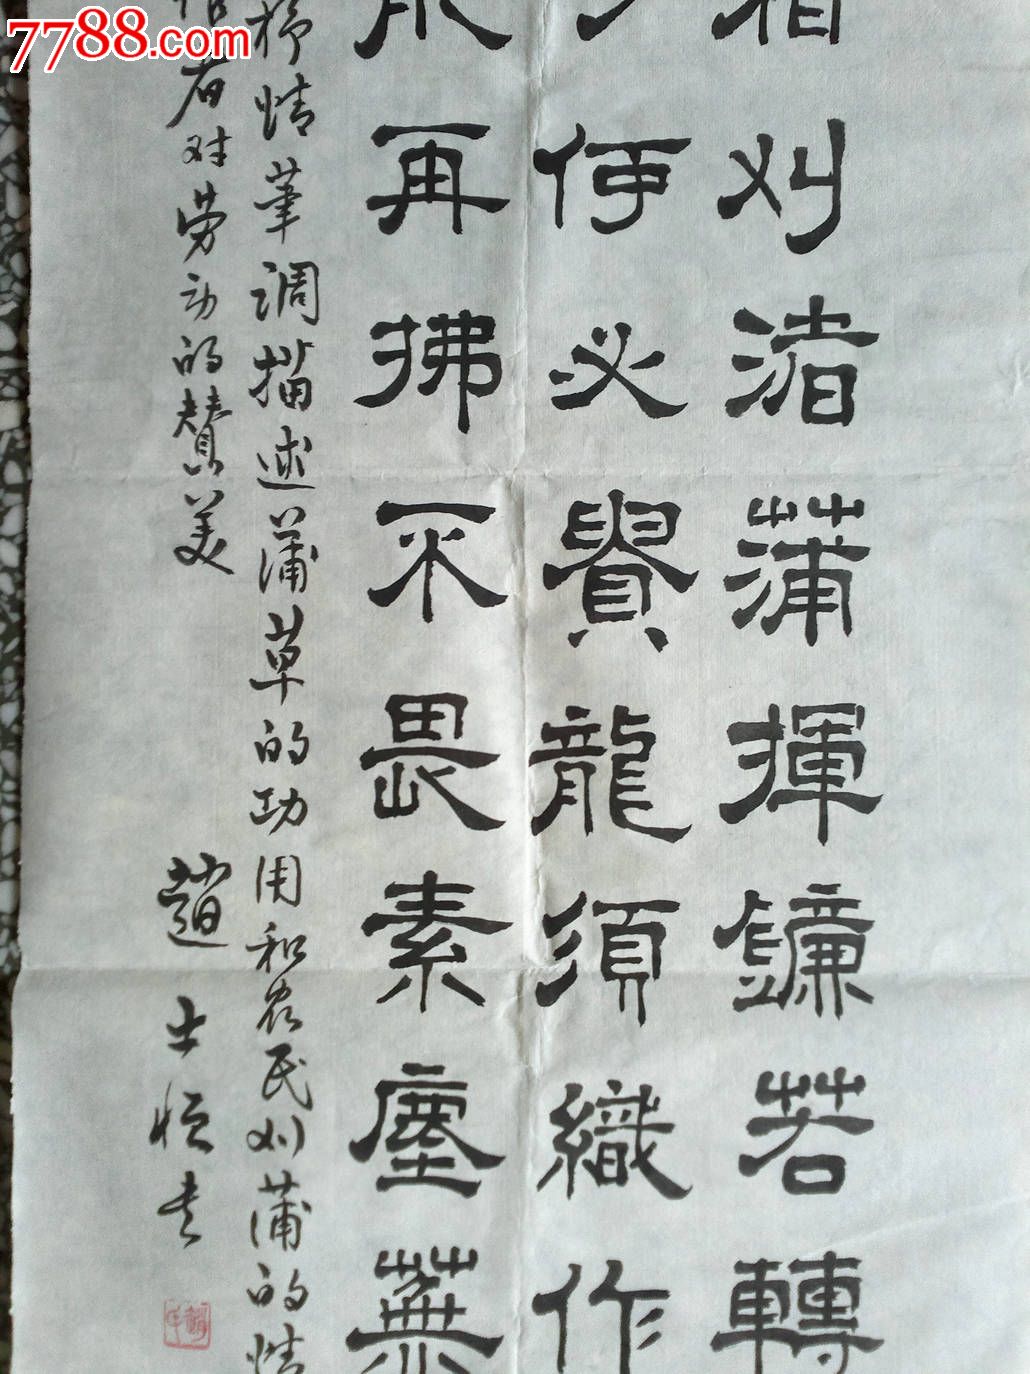 7788.com
刈渚蒲揮鐮若轉
何必貴龍須織作
再拂不畏素塵蕪
抒情笔调描述蒲草的功用和农民刈蒲的情
者对劳动的赞美
趙士恒书